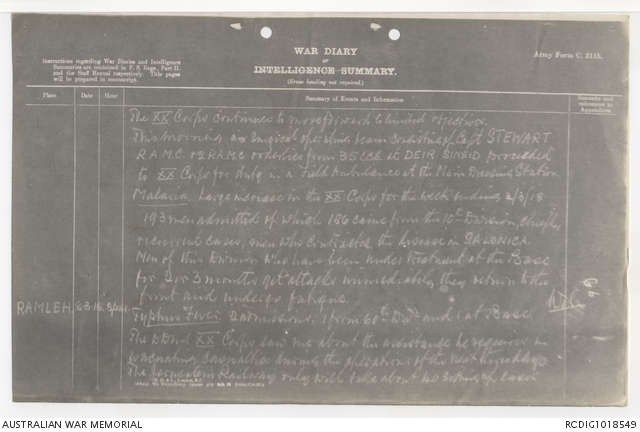 WAR DIARY
or
INTELLIGENCE SUMMARY.
(Erase heading not required.)
Army Form C. 2118.
Instructions regarding War Diaries and Intelligence
Summaries are contained in F. S. Regs., Part II.
and the Staff Manual respectively. Title pages
will be prepared in manuscript.
Place Date Hour Summary of Events and Information Remarks and references to Appendices
The XX Corps continues to move forward to limited objectives.
This morning a surgical operating team consisting of Capt. STEWART
R.A.M.C. & 2 R.A.M.C. orderlies from 35 CCS at DEIR SINEID proceeded
to XX Corps for duty in a Field Ambulance at the Main Dressing Station
Malaria. Large increase in the XX Corps for the week ending 2/3/18
193 men admitted of which 186 came from the 10th Division, chiefly
recurrent cases, men who contracted the disease in SALONICA.
Men of this Division who have been under treatment at the Base
for 2 or 3 months get attacks immediately they return to the
front and undergo fatigue.
RAMLEH
Typhus Fever. 2 admissions, 1 from 60th Divn and 1 at Base
The DDMS XX Corps saw me about the assistance he required in
evacuating casualties during the operations of the next few days
The Jerusalem Railway only will take about 40 sitting
AUSTRALIAN WAR MEMORIAL
RCDIG1018549